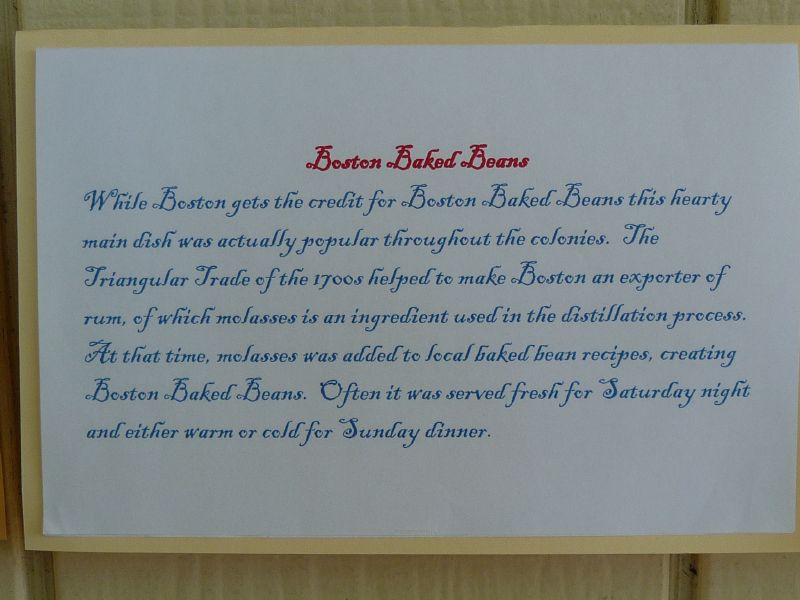 Boston Baked Beans
While Boston gets the credit for Boston Baked Beans this hearty
main dish was actually popular throughout the colonies. The
Triangular Trade of the 1700s helped to make Boston an exporter of
rum, of which molasses is an ingredient used in the distillation process.
At that time, molasses was added to local baked bean recipes, creating
Boston Baked Beans. Often it was served fresh for Saturday night
and either warm or cold for Sunday dinner.